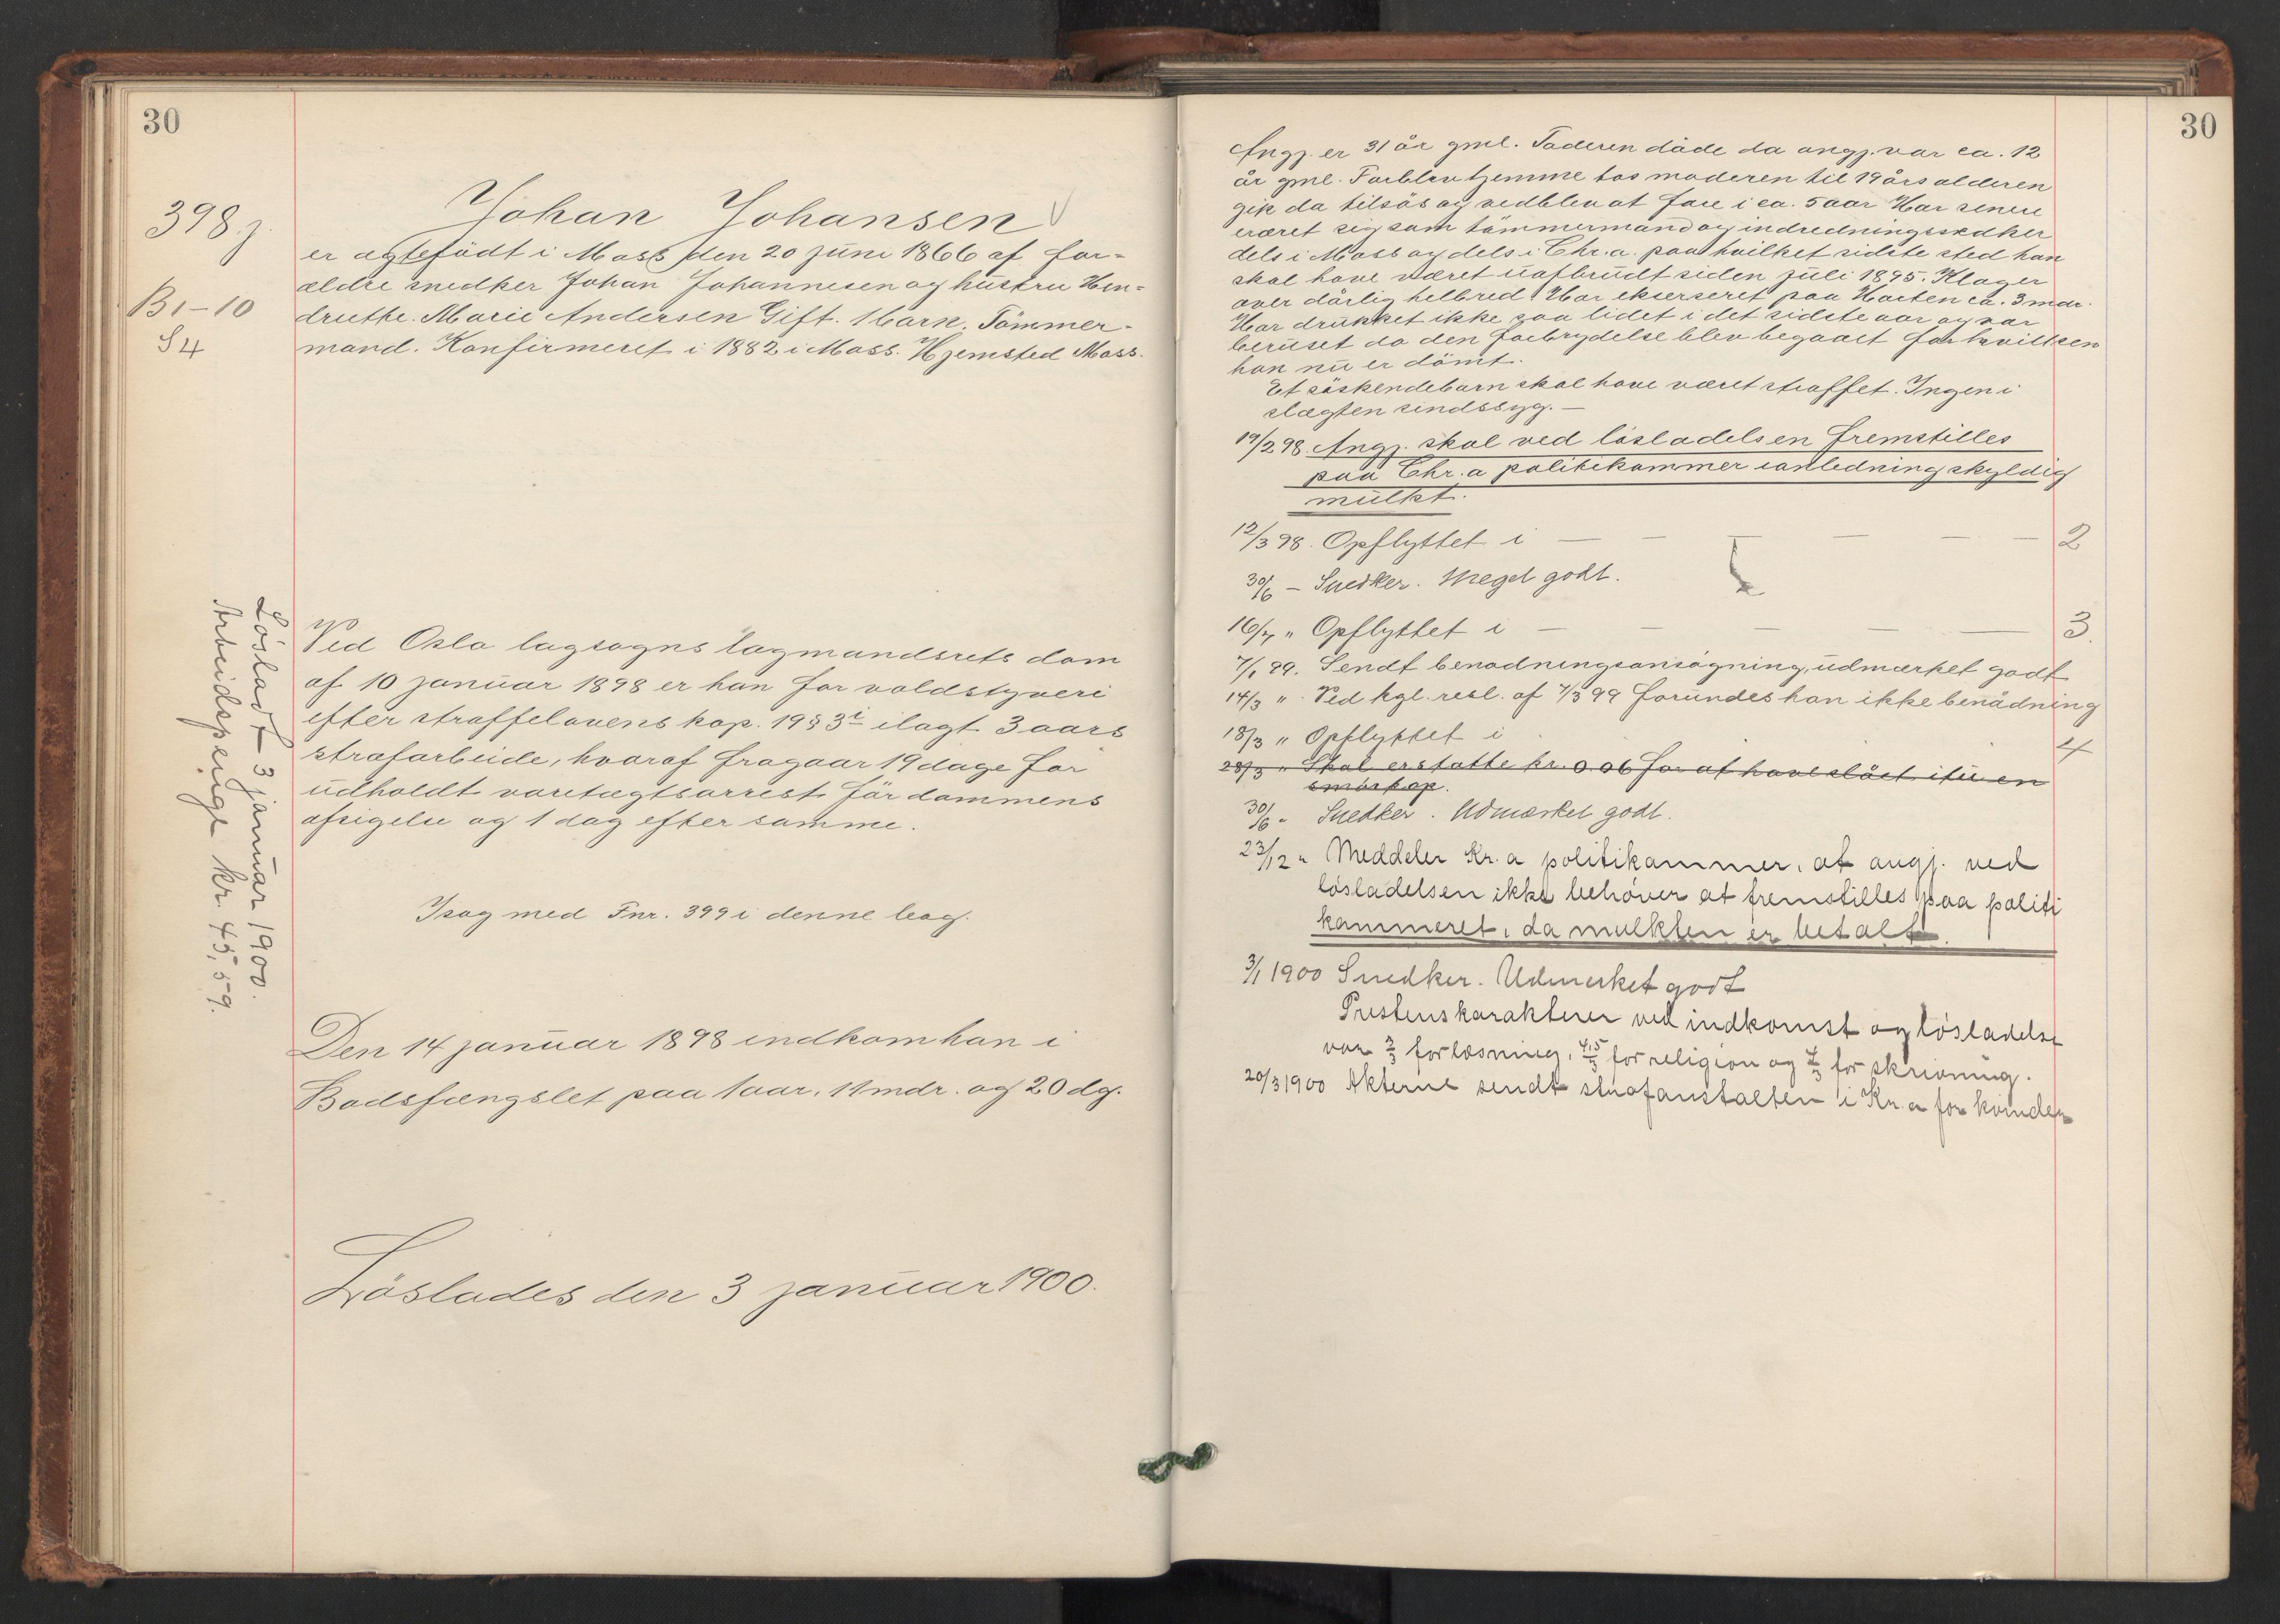 30
398.j.
B1-10
S4
Johan Johansen
er ægtefödt i Moss den 20 juni 1866 af for-
ældre snedker Johan Johannesen og hustru Hen-
druthe Marie Andersen Gift. 1 barn. Tömmer-
mand. Konfirmeret i 1882 i Moss. Hjemsted Moss.
Ved Oslo lagsogns lagmandsrets dom
af 10 januar 1898 er han for voldstyveri
efter straffelovens kap. 19 § 3 ilagt 3 aars
strafarbeide, hvoraf fragaar 19 dage for
udholdt varetægtsarrest för dommens
afsigelse og 1 dag efter samme.
Isag med Fnr. 399 i denne bog.
Den 14 januar 1898 indkom han i
Bodsfængslet paa 1 aar, 11 mdr. og 20 dg.
Löslades den 3 januar 1900.
Lösladt 3 januar 1900.
Arbeidspenge kr. 45,59.
30
Angj. er 31 år gml. Faderen döde da angj. var ca. 12
år gml. Forblev hjemme hos moderen til 19 års alderen
gik da tilsös og vedblev at fare i ca. 5 aar Har senere
ernæret seg som tömmermand og indredningssnedker
dels i Moss og dels i Chr.a. paa hvilket sidste sted han
skal have været uafbrudt siden juli 1895. Klager
over dårlig helbred. Har ekserseret paa Horten ca. 3 mdr.
Har drukket ikke saa lidet i det sidste aar og var
beruset da den forbrydelse blev begaaet for hvilken
han nu er dömt.
Et söskendebarn skal have været straffet. Ingen i
slægten sindssyg. —
19/2 98. Angj. skal ved lösladelsen fremstilles
paa Chr.a politikammer i anledning skyldig
mulkt.
12/3 98. Opflyttet i — — — — — 2
30/6 — Snedker. Meget godt.
16/7 " Opflyttet i — — — — — 3.
7/1 99. Sendt benådningsansögning, udmærket godt
14/3 " Ved kgl. resl. af 7/3 99 forundes han ikke benådning
18/3 " Opflyttet i 4
28/3 " Skal erstatte kr. 0.06 for at have slået itu en
smörkop.
30/6 " Snedker. Udmærket godt.
23/12 " Meddeler Kr.a politikammer, at angj. ved
lösladelsen ikke behöver at fremstilles paa politi
kammeret, da mulkten er betalt.
3/1 1900 Snedker. Udmerket godt
Prestens karakterer ved indkomst og lösladelse
var 3/3 for læsning, 4,5/3 for religion og 4/3 for skrivning.
20/3 1900 Akterne sendt strafanstalten i Kr.a for kvinder